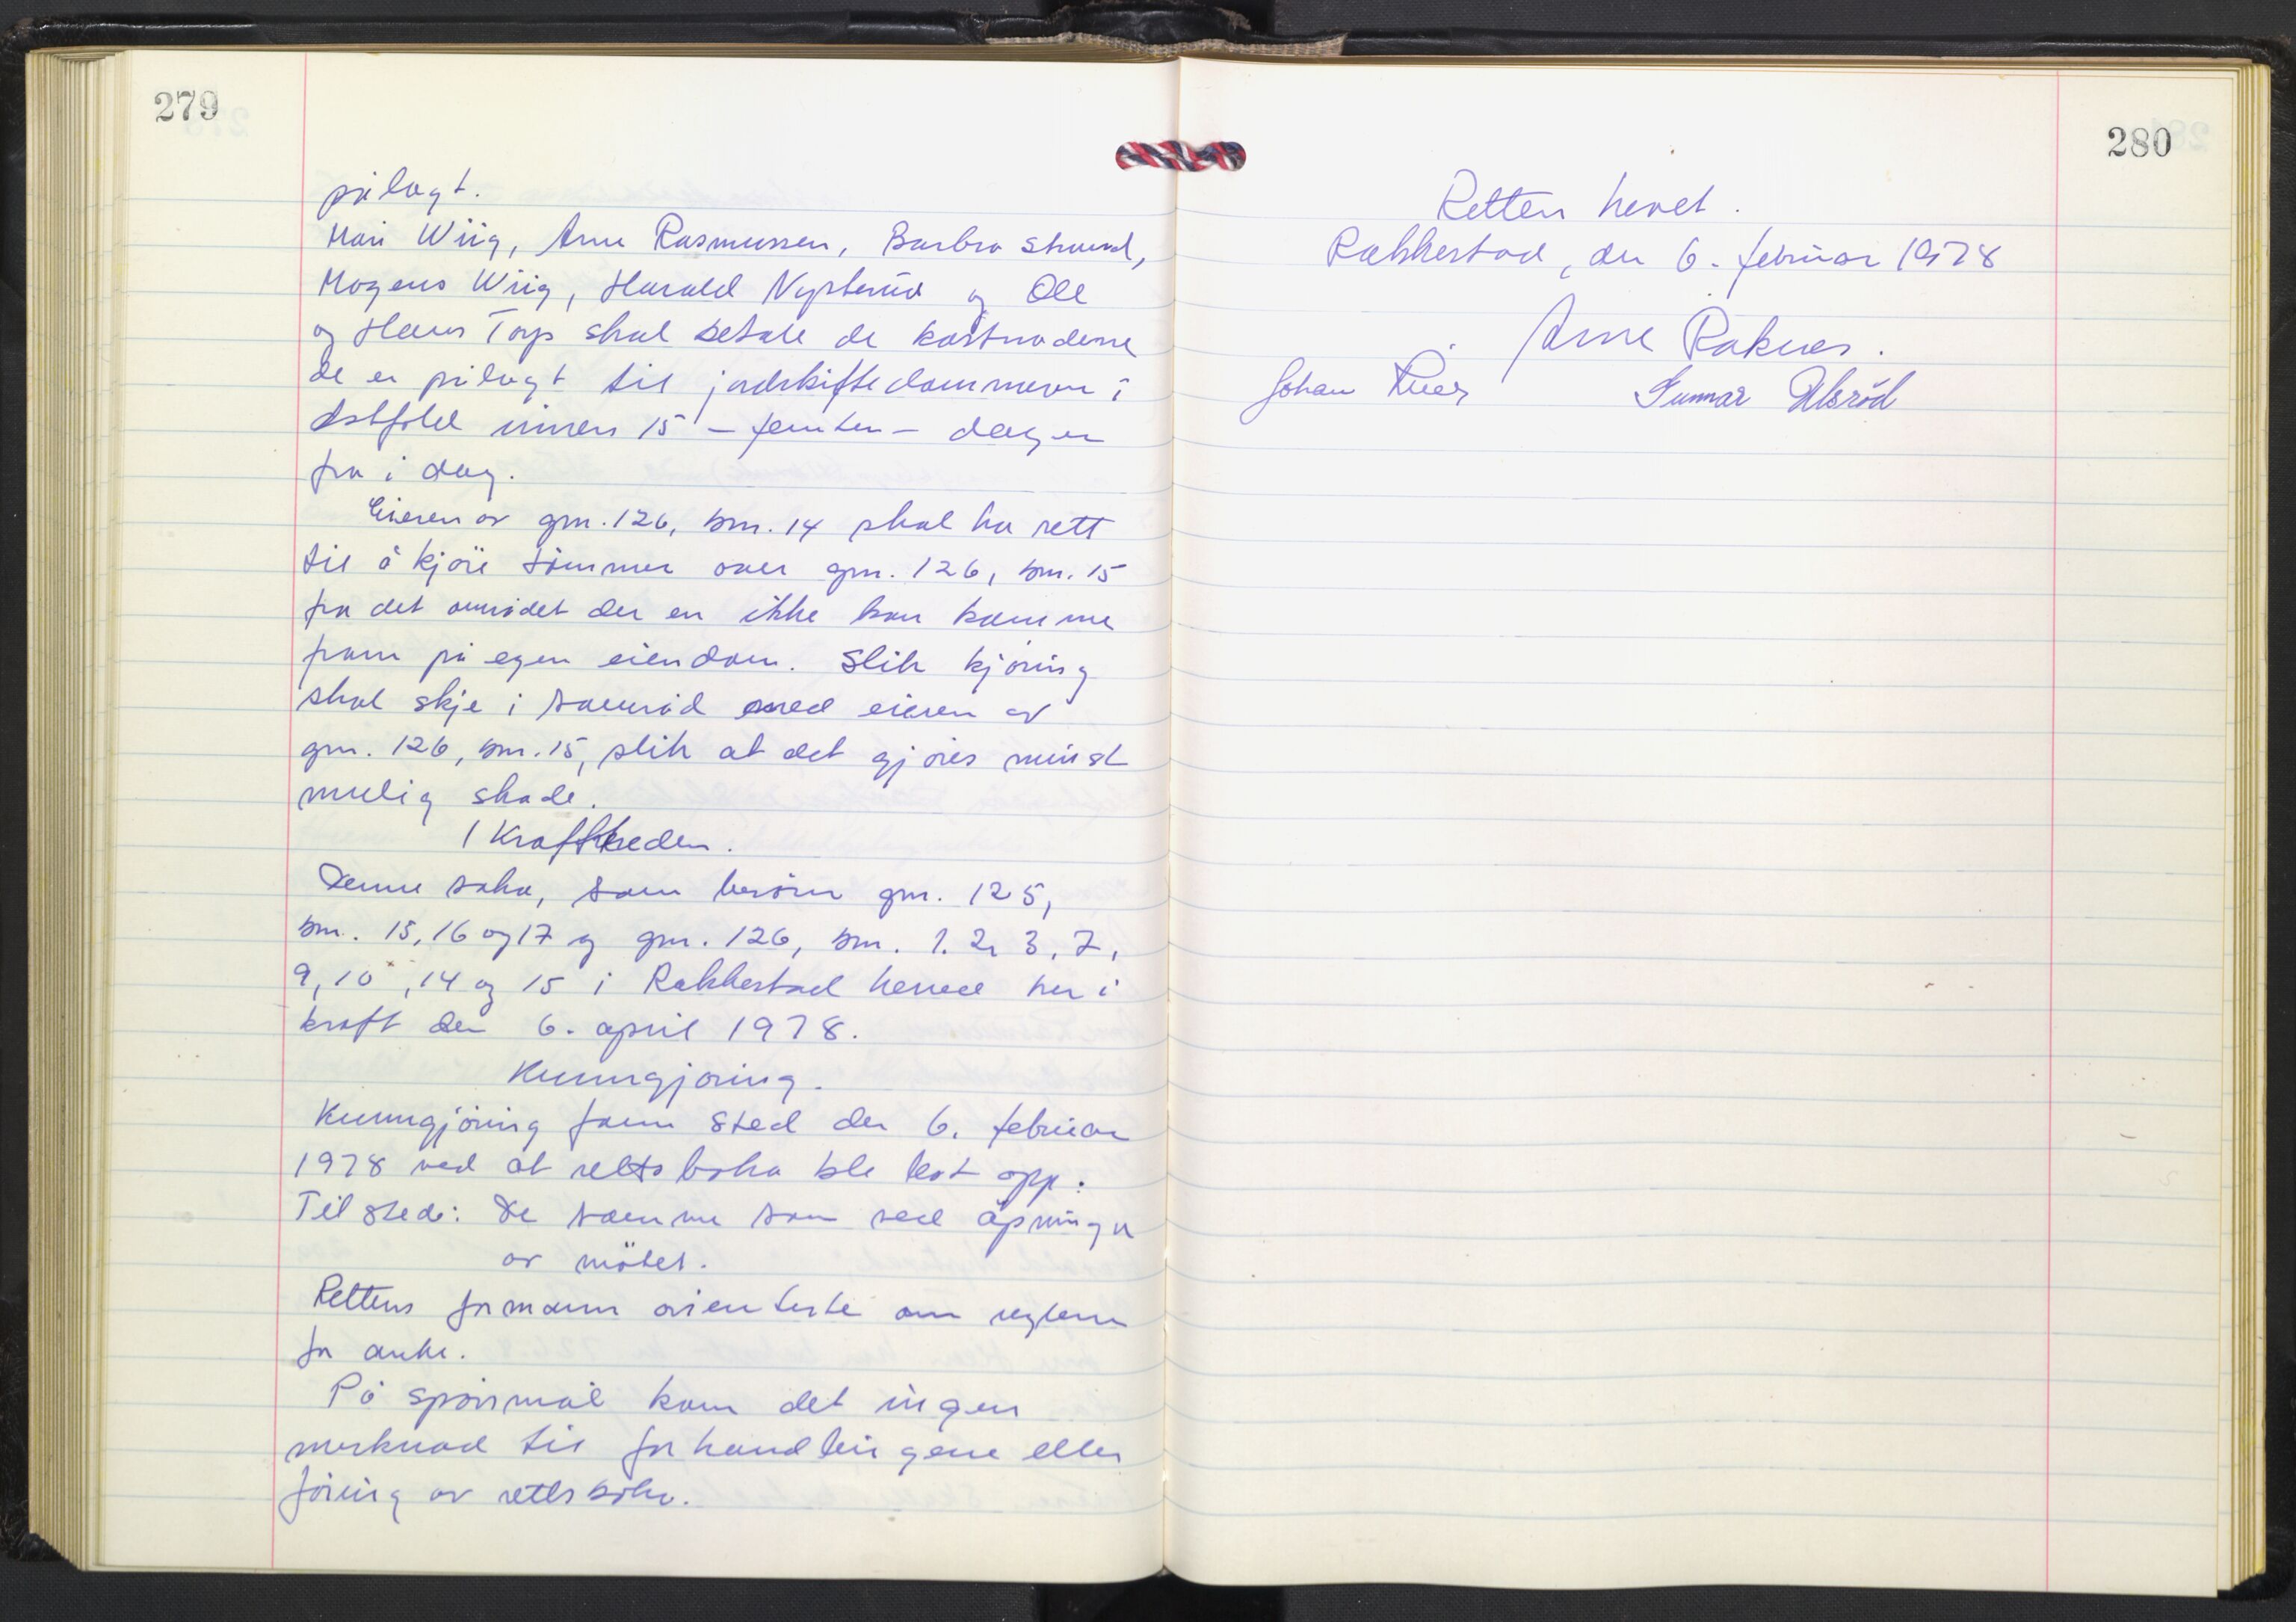 279
pålagt.
Mari Wiig, Arne Rasmussen, Barbra Strand,
Mogens Wiig, Harald Nysterud og Ole
og Hans Torp skal betale de kostnadene
de er pålagt til jordskiftedommeren i
Østfold innen 15 - femten - dager
fra i dag.
Eieren av gnr. 126, bnr. 14 skal ha rett
til å kjøre tømmer over gnr. 126, bnr. 15
fra det området der en ikke kan komme
fram på egen eiendom. Slik kjøring
skal skje i samråd med eieren av
gnr. 126, bnr. 15, slik at det gjøres minst
mulig skade.
Ikrafttreden.
Denne saka, som berører gnr. 125,
bnr. 15, 16 og 17 og gnr. 126, bnr. 1. 2, 3, 7,
9, 10, 14 og 15 i Rakkestad herred trer i
kraft den 6. april 1978.
Kunngjøring.
Kunngjøring fann sted den 6. februar
1978 ved at rettsboka ble lest opp.
Til stede: De samme som ved åpninga
av møtet.
Rettens formann orienterte om reglene
for anke.
På spørsmål kom det ingen
merknad til forhandlingene eller
føring av rettsboka.
280
Retten hevet.
Rakkestad, den 6. februar 1978
Arne Raknes.
Johan
Gunnar Ulsrød